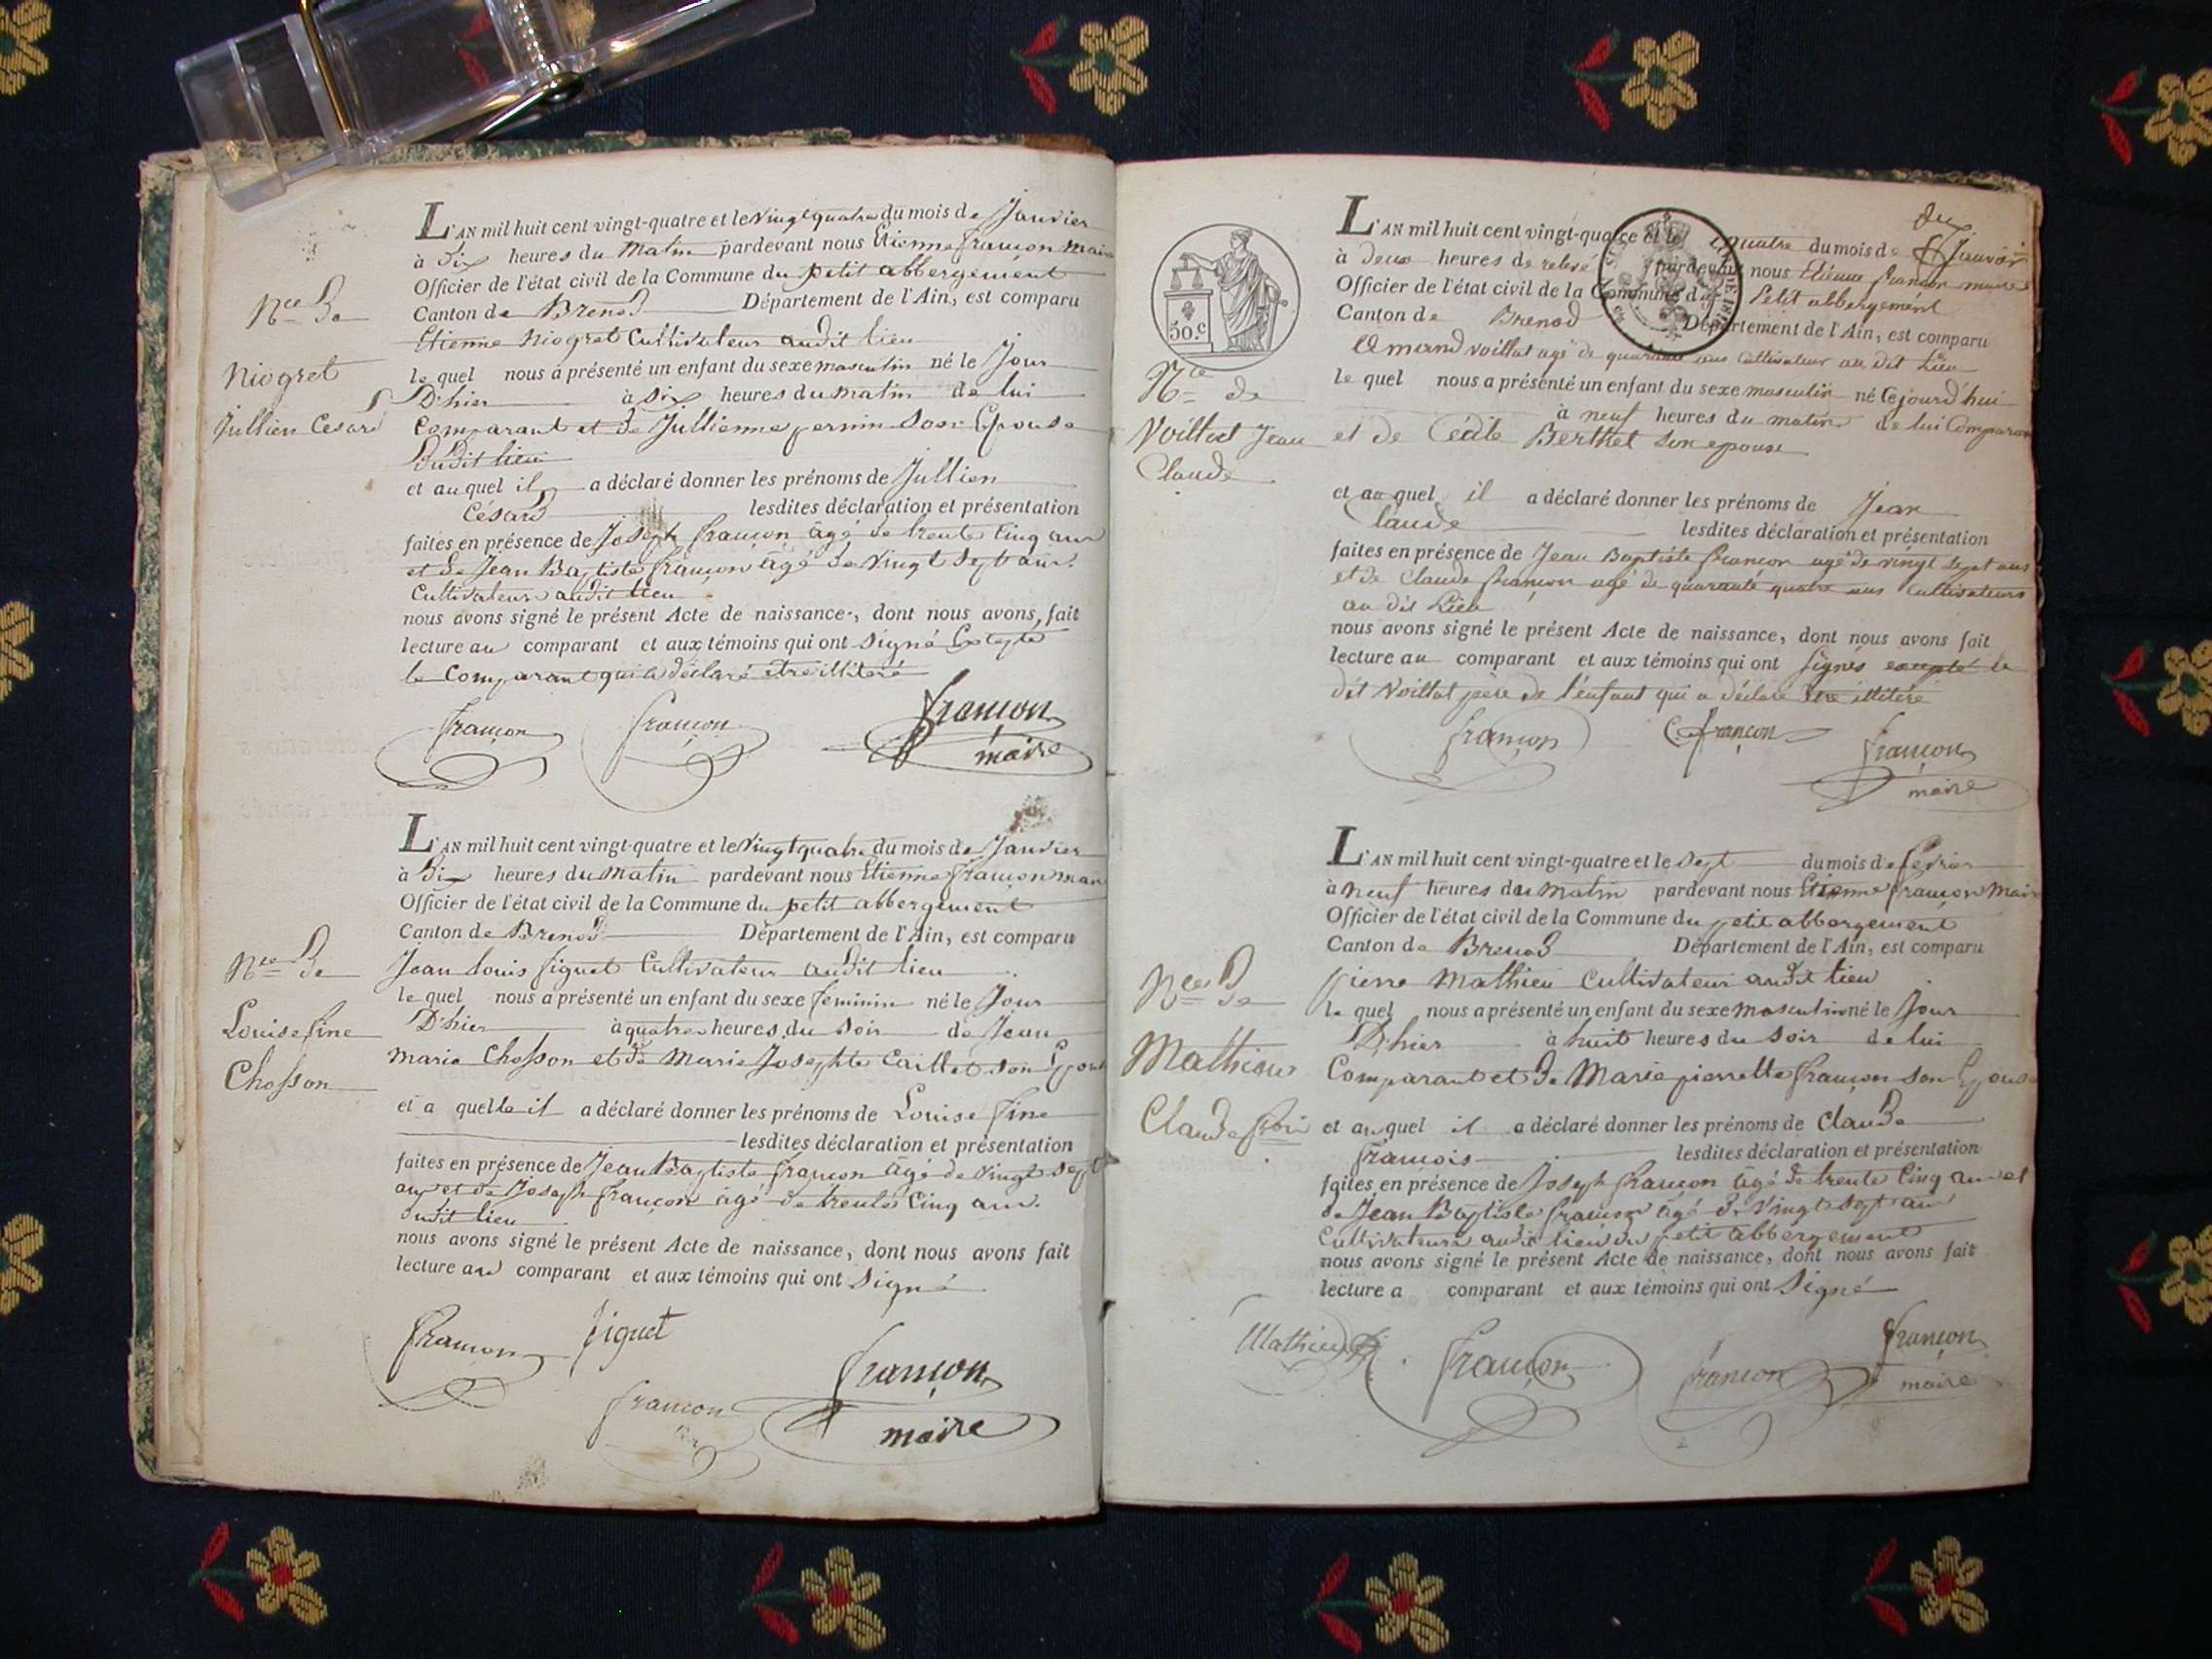 L'AN mil huit cent vingt-quatre et le vingt quatre du mois de Janvier
à dix heures du matin pardevant nous Etienne françon maire
Officier de l'état civil de la Commune du petit abbergement
Canton de Brenod Département de l'Ain, est comparu
Etienne Niogret Cultivateur audit lieu
le quel nous à présenté un enfant du sexe masculin né le Jour
D'hier à six heures du matin de lui
Comparant et de Jullienne pernin son Epouse
dudit lieu
et au quel il a déclaré donner les prénoms de Jullien
Césard lesdites déclaration et présentation
faites en présence de Joseph françon âgé de trente cinq ans
et de Jean Baptiste françon âgé de vingt sept ans
Cultivateurs audit lieu
nous avons signé le présent Acte de naissance, dont nous avons, fait
lecture au comparant et aux témoins qui ont signé Excepté
le Comparant qui a déclaré etre illitéré
françon françon françon
maire
Nce De
Niogret
Jullien Cesard
L'AN mil huit cent vingt-quatre et le vingt quatre du mois de Janvier
à Dix heures du matin pardevant nous Etienne françon maire
Officier de l'état civil de la Commune du petit abbergement
Canton de Brenod Département de l'Ain, est comparu
Jean Louis figuet Cultivateur audit lieu
le quel nous a présenté un enfant du sexe feminin né le Jour
D'hier à quatre heures du soir de Jean
marie Chosson et de Marie Josephte Caillet son Epouse
et a quelle il a déclaré donner les prénoms de Louise fine
lesdites déclaration et présentation
faites en présence de Jean Baptiste françon âgé de vingt sept
ans et de Joseph françon âgé de trente cinq ans.
dudit lieu
nous avons signé le présent Acte de naissance, dont nous avons fait
lecture au comparant et aux témoins qui ont signé
françon figuet
françon françon
maire
Nce De
Louise fine
Chosson
L'AN mil huit cent vingt-quatre et le quatre du mois de Janvier
à deux heures de relevé pardevant nous Etienne françon maire
Officier de l'état civil de la Commune du Petit abbergement
Canton de Brenod Département de l'Ain, est comparu
voillat agé de quarante ans cultivateur au dit Lieu
le quel nous a présenté un enfant du sexe masculin né Cejourd'hui
à neuf heures du matin de lui Comparant
et de Cécile Berthet son epouse
et au quel il a déclaré donner les prénoms de Jean
Claude lesdites déclaration et présentation
faites en présence de Jean Baptiste françon agé de vingt sept ans
et de Claude françon agé de quarante quatre ans Cultivateurs
au dit Lieu
nous avons signé le présent Acte de naissance, dont nous avons fait
lecture au comparant et aux témoins qui ont signés excepté le
dit Voillat père de l'enfant qui a déclaré être illitéré
françon C françon françon
maire
50.c
Nce de
Voillat Jean
Claude
L'AN mil huit cent vingt-quatre et le sept du mois de fevrier
à neuf heures du matin pardevant nous Etienne françon Maire
Officier de l'état civil de la Commune du petit abbergement
Canton de Brenod Département de l'Ain, est comparu
pierre Mathieu Cultivateur audit lieu
le quel nous a présenté un enfant du sexe masculin né le Jour
D'hier à huit heures du soir de lui
Comparant et de Marie pierrette françon son Epouse
et au quel il a déclaré donner les prénoms de Claude
françois lesdites déclaration et présentation
faites en présence de Joseph françon âgé de trente cinq ans et
de Jean Baptiste françon âgé de vingt sept ans
Cultivateurs audit lieu du petit abbergement
nous avons signé le présent Acte de naissance, dont nous avons fait
lecture a comparant et aux témoins qui ont signé
Mathieu françon françon françon
maire
Nce De
Mathieu
Claude